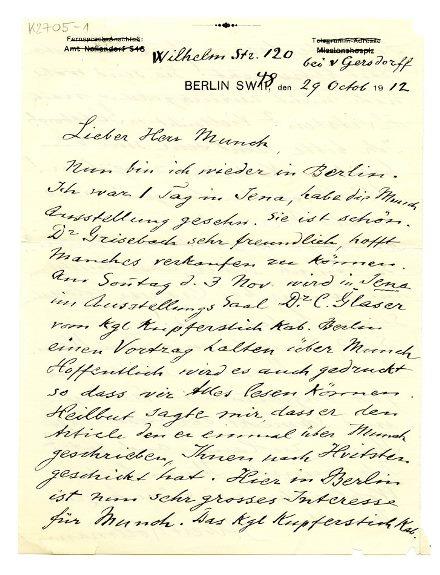 K2705-1
Fernsprech-Anschluß:
Amt Nollendorf 546
Telegramm-Adresse
Missionshospiz
Wilhelm Str. 120
bei v Gersdorff
BERLIN SW 48, den 29 Octob 1912
Lieber Herr Munch,
Nun bin ich wieder in Berlin.
Ich war 1 Tag in Jena, habe die Munch
Ausstellung gesehn. Sie ist schön.
Dr Grisebach sehr freundlich, hofft
Manches verkaufen zu können.
Am Sontag d. 3 Nov. wird in Jena
im Ausstellungs Saal Dr C. Glaser
vom Kgl Kupferstich Kab. Berlin
einen Vortrag halten über Munch
Hoffentlich wird es auch gedruckt
so dass wir Alles lesen können.
Heilbut sagte mir, dass er den
Article den er einmal über Munch
geschrieben, Ihnen nach Hvitsten
geschickt hat. Hier in Berlin
ist nun sehr grosses Interesse
für Munch. Das Kgl Kupferstich Kab.